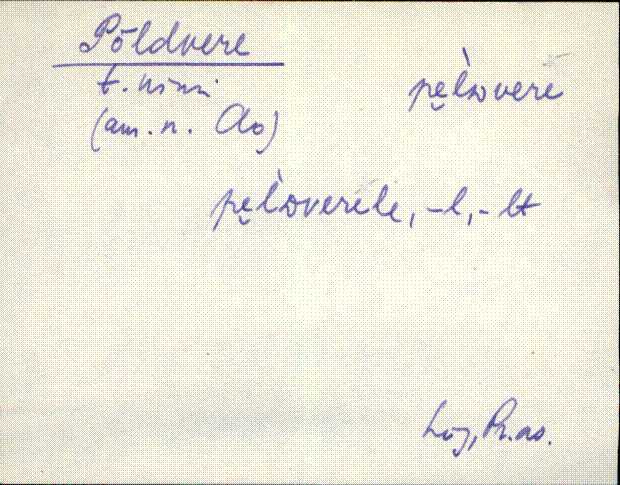 Põldvere
t. nimi
(am. n. Ao)
pe̮l̀dvere
pe̮l̀dverele, -l, -lt
Lüg, Pr. as.